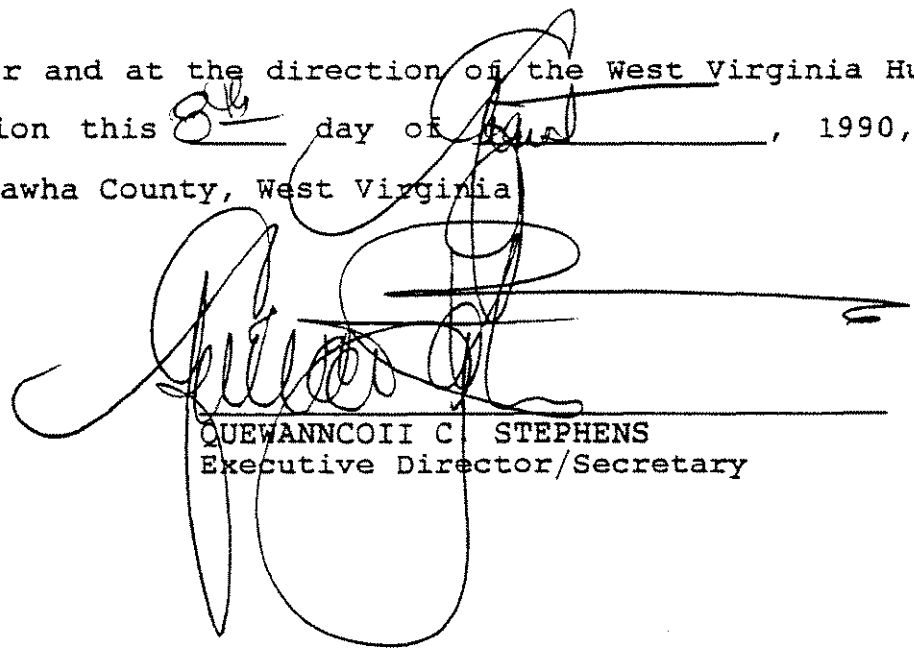 r and at the direction of the West Virginia Hu
ion this 8th day of , 1990,
awha County, West Virginia
QUEWANNCOII C. STEPHENS
Executive Director/Secretary